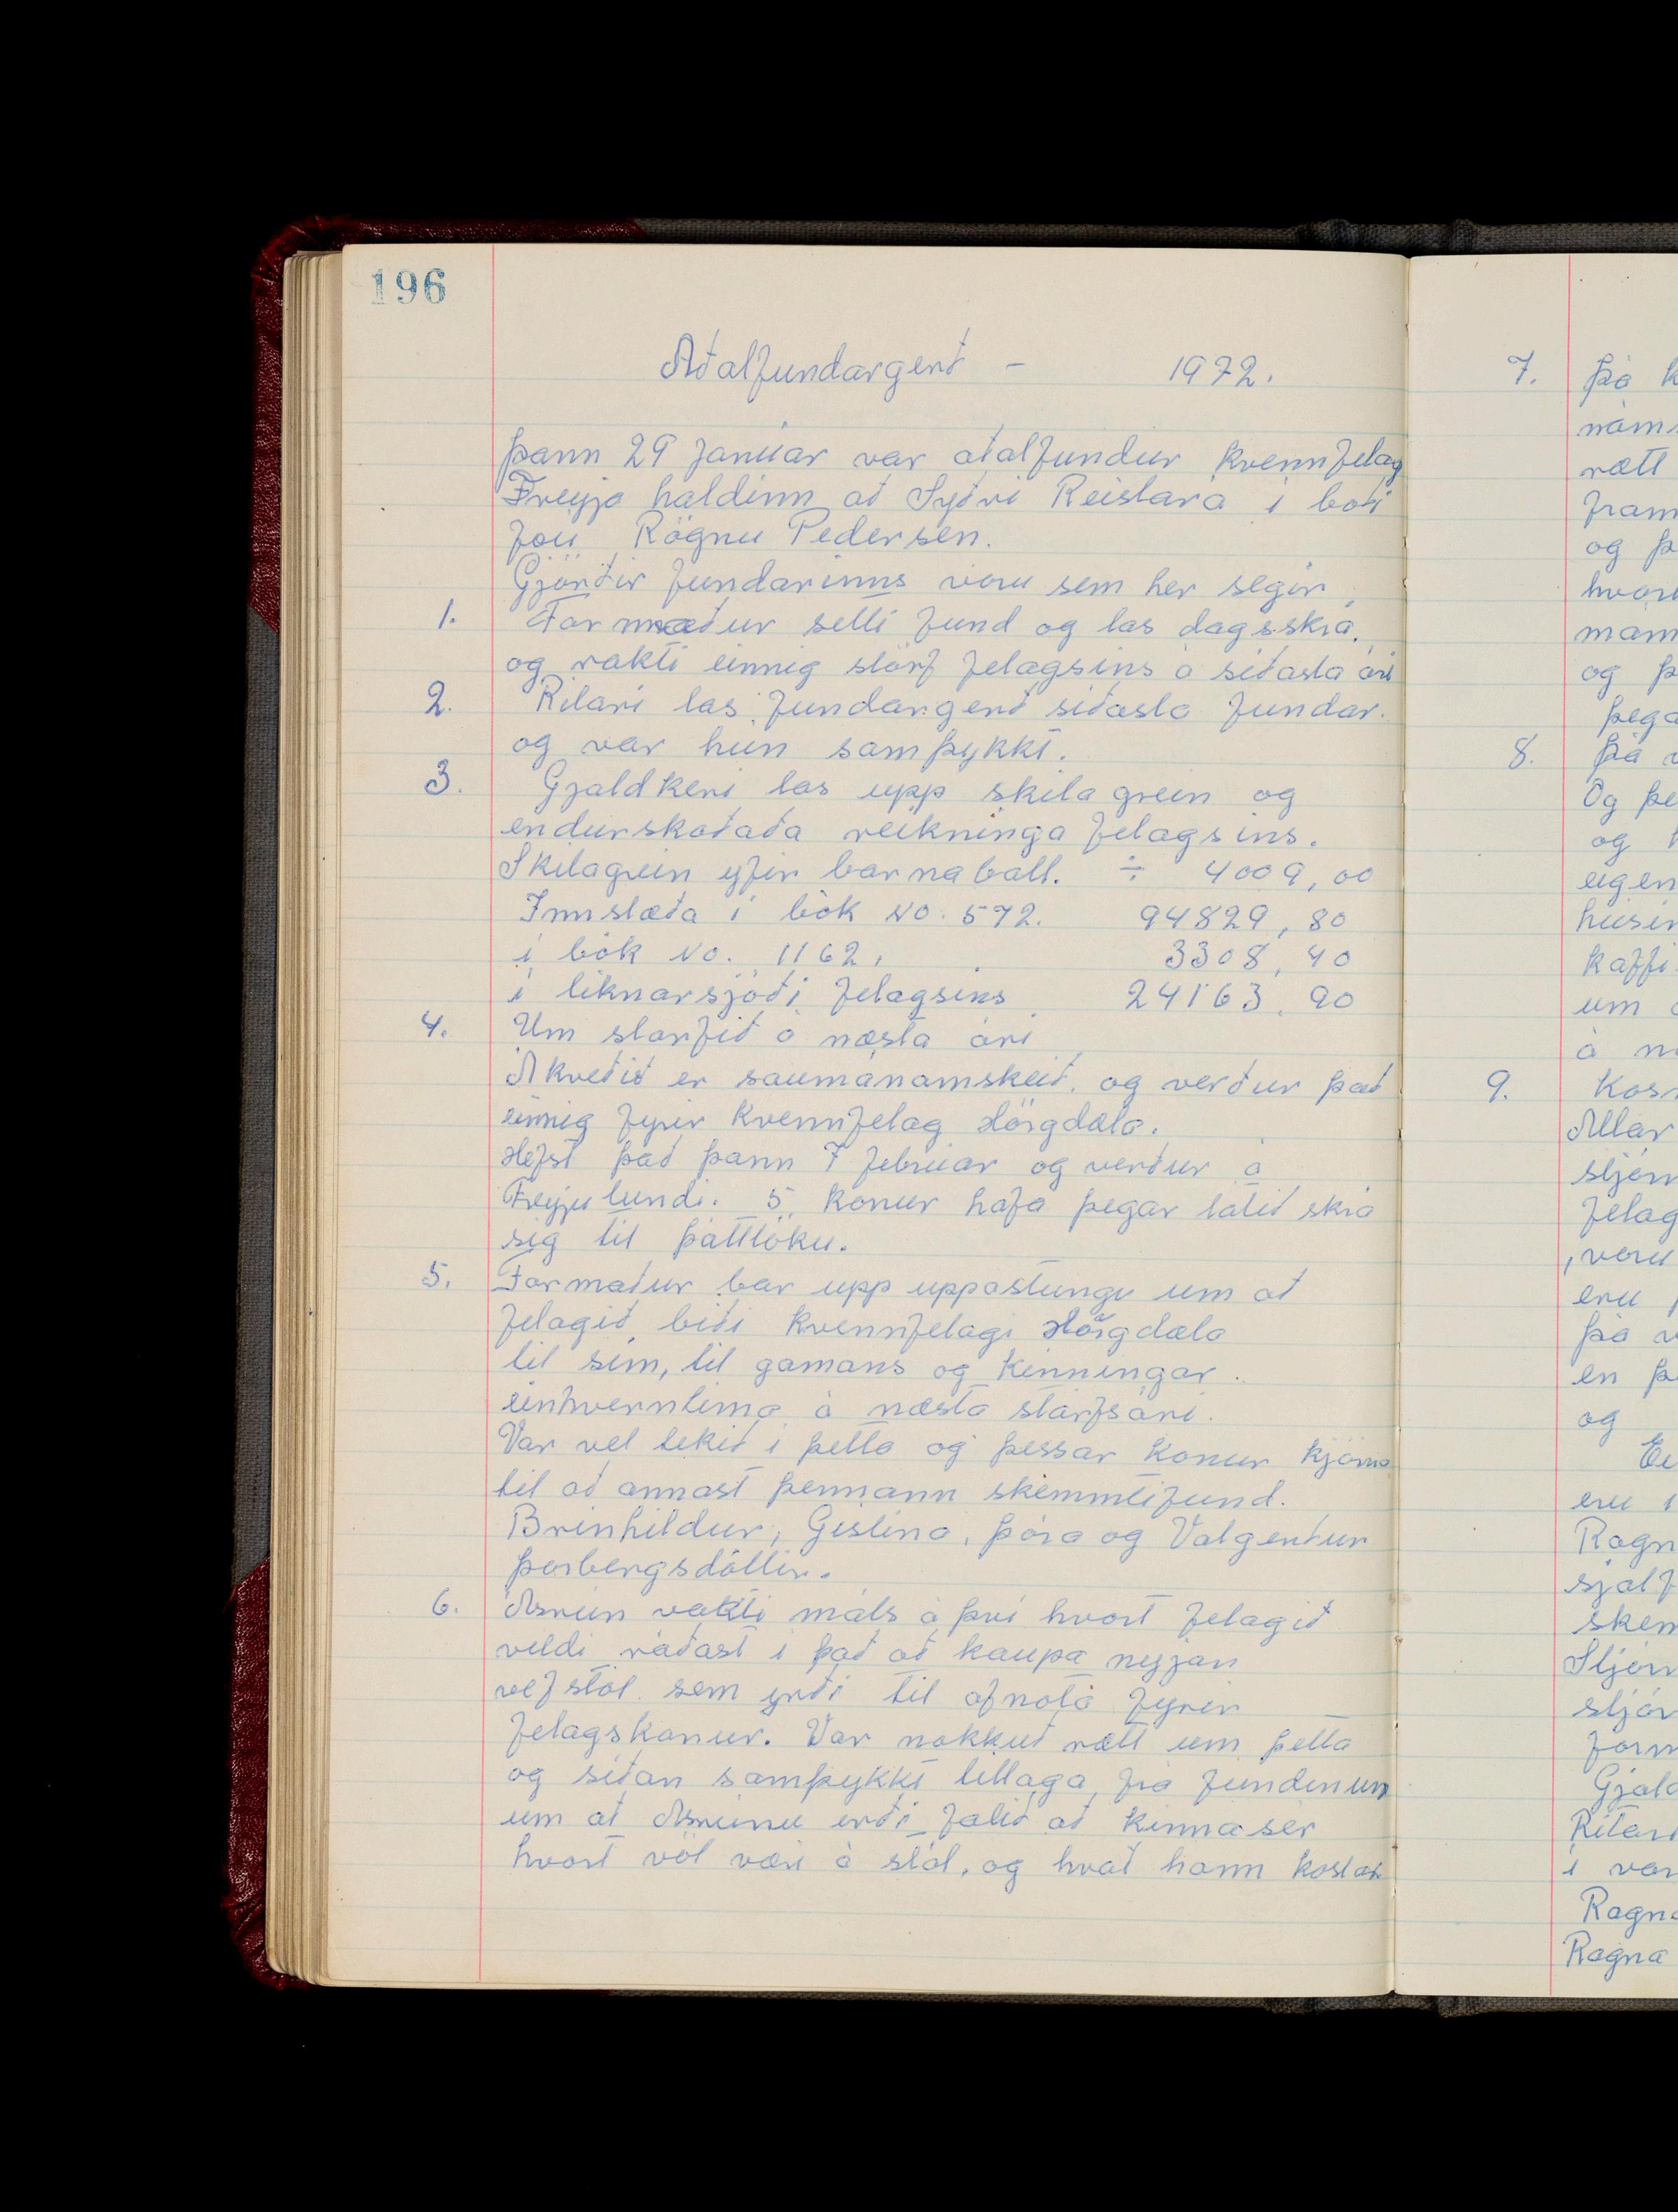 196
Aðalfundargerð - 1972.
Þann 29 Janúar var aðalfundur kvennfélag
Freyja haldinn að Syðri Reistará í boði
frú Rögnu Pedersen.
Gjörðir fundarinns voru sem hér segir,
1. Formaður setti fund og las dagsskrá.
og rakti einnig störf félagsins á síðasta ári
2. Ritari las fundargerð síðasta fundar.
og var hún samþykkt.
3. Gjaldkeri las upp skilagrein og
endurskoðaða reikninga félagsins.
Skilagrein yfir barnaball. ÷ 4009,00
Innstæða í bók No. 572. 94829,80
í bók No. 1162, 3308,40
í líknarsjóði félagsins 24163.90
4. Um starfið á næsta ári
Ákveðið er saumanámskeið. og verður það
einnig fyrir kvennfélag Hörgdæla.
Hefst það þann 7 febrúar og verður á
Freyjulundi. 5. konur hafa þegar látið skrá
sig til þátttöku.
5. Formaður bar upp uppástungu um að
félagið biði kvennfélagi Hörgdæla
til sín, til gamans og kinningar.
einhverntíma á næsta starfsári.
Var vel tekið í þetta og þessar konur kjörna
til að annast þennann skemmtifund.
Brinhildur, Gíslína, Þóra og Valgerður
Þorbergsdóttir.
6. Ásrún vakti máls á því hvort félagið
vildi ráðast í það að kaupa nyjjan
vefstól sem yrði til afnota fyrir
félagskonur. Var nokkuð rætt um þetta
og síðan samþykkt tillaga frá fundinum
um að Ásrúnu erði falið að kinna sér
hvort völ væri á stól, og hvað hann kostar
7. Þá
rætt
og
8. Þá
Og
og
um
á
9.
Allar
eru
þá
en
og
eru
Ritari
í
Ragna